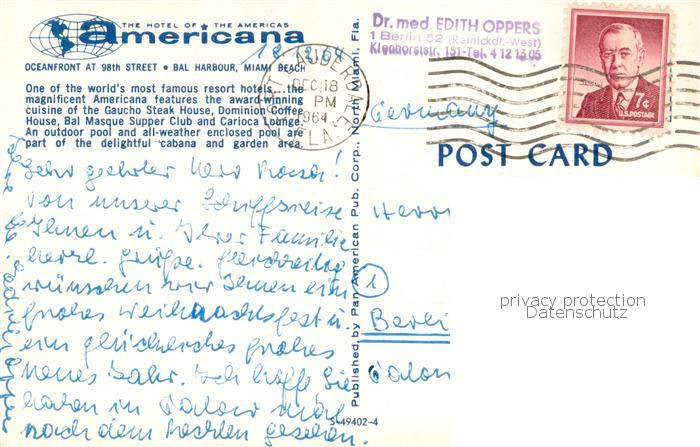 THE HOTEL OF THE AMERICAS
Americana
OCEANFRONT AT 98th STREET • BAL HARBOUR, MIAMI BEACH
One of the world's most famous resort hotels... the
magnificent Americana features the award-winning
cuisine of the Gaucho Steak House, Dominion Coffee
House, Bal Masque Supper Club and Carioca Lounge.
An outdoor pool and all-weather enclosed pool are
part of the delightful cabana and garden area.
18.12.64
Sehr geehrter Herr
von unserer Schiffsreise
Ihnen u. Ihrer Familie
herzl. Grüße. gleichzeitig
wünschen wir Ihnen ein
frohes Weihnachtsfest u.
ein glückliches frohes
neues Jahr. Ich hoffe Sie
haben in
nach dem Rechten gesehen.
Published by Pan American Pub. Corp., North Miami, Fla.
S-49402-4
DEC 18
PM
1964
FLA.
Dr. med. EDITH OPPERS
1 Berlin 52 (Reinickdf.-West)
Kienhorststr. 151-Tel. 4 12 13 05
7¢
U.S. POSTAGE
Germany
POST CARD
Herrn
1
Berli
privacy protection
Datenschutz